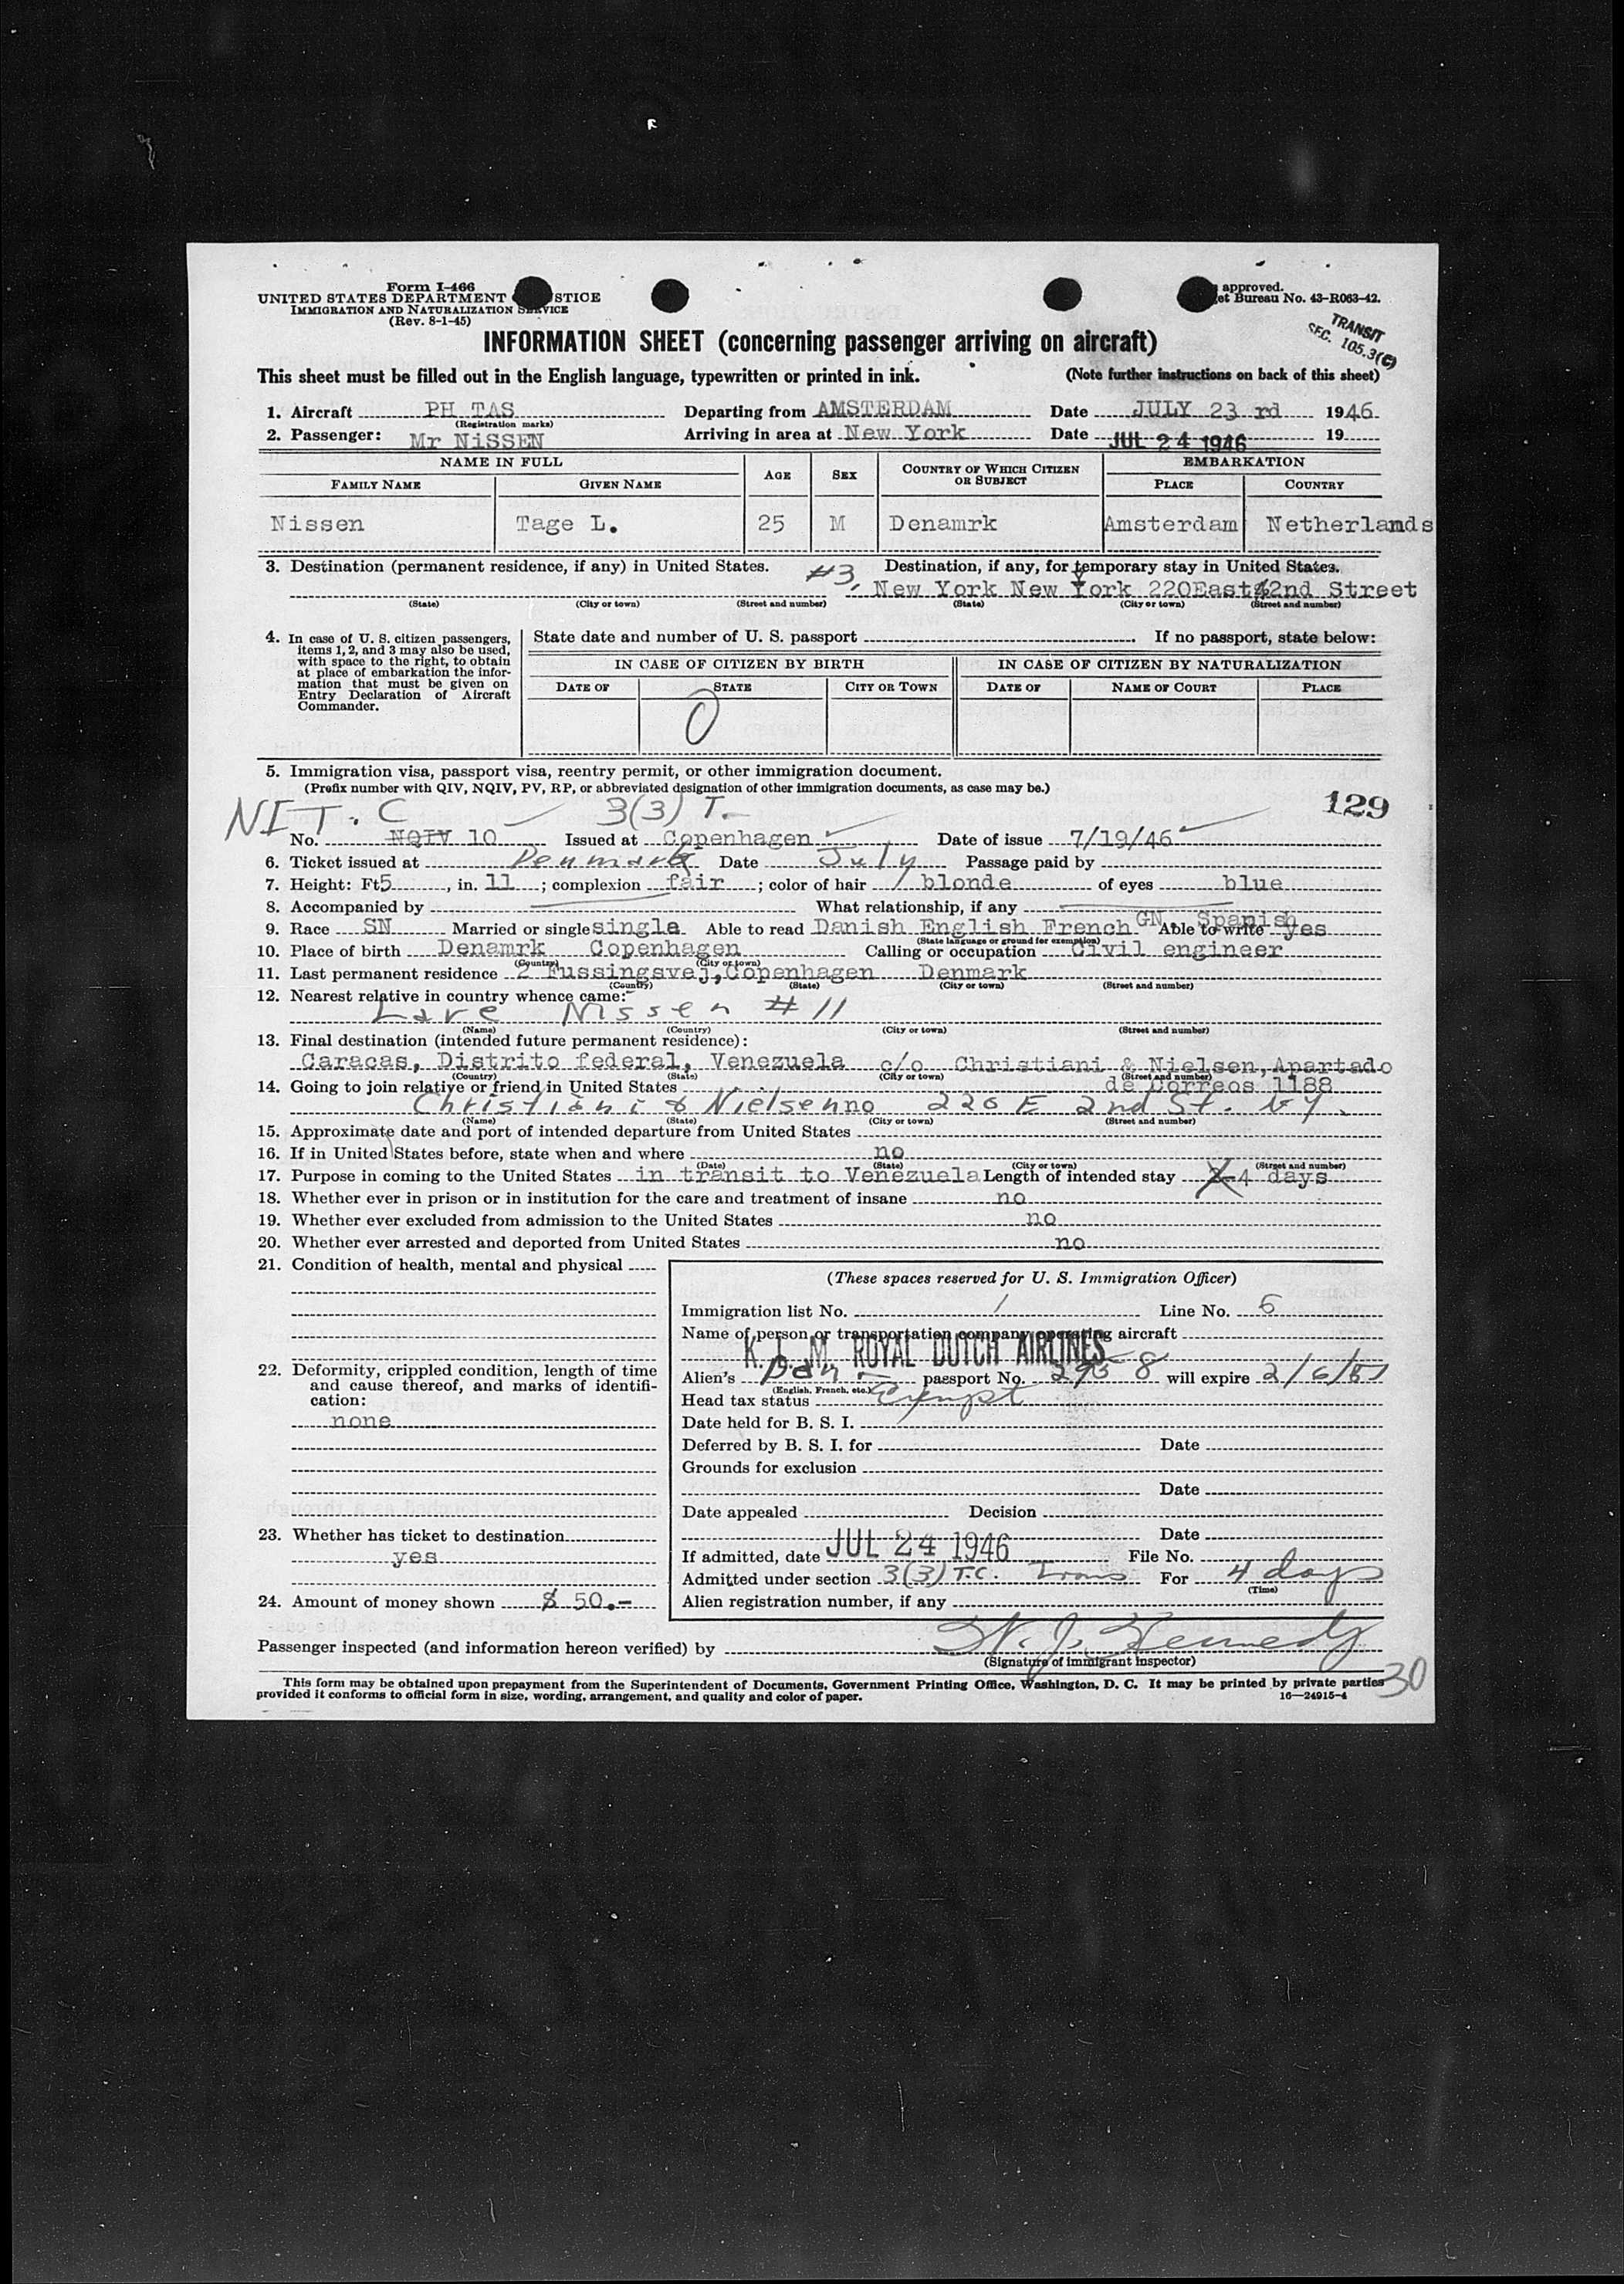 Form I-466
UNITED STATES DEPARTMENT STICE
IMMIGRATION AND NATURALIZATION SERVICE
(Rev. 8-1-45)
approved.
et Bureau No. 43-R063-42.
TRANSIT
SEC. 105.3(c)
INFORMATION SHEET (concerning passenger arriving on aircraft)
This sheet must be filled out in the English language, typewritten or printed in ink. (Note further instructions on back of this sheet)
1. Aircraft PH TAS Departing from AMSTERDAM Date JULY 23 rd 1946
(Registration marks)
2. Passenger: Mr NiSSEN Arriving in area at New York Date JUL 24 1946 19
NAME IN FULL AGE SEX COUNTRY OF WHICH CITIZEN OR SUBJECT EMBARKATION
FAMILY NAME GIVEN NAME PLACE COUNTRY
Nissen Tage L. 25 M Denamrk Amsterdam Netherlands
3. Destination (permanent residence, if any) in United States. #3, Destination, if any, for temporary stay in United States.
New York New York 220East 42nd Street
(State) (City or town) (Street and number) (State) (City or town) (Street and number)
4. In case of U. S. citizen passengers, items 1, 2, and 3 may also be used, with space to the right, to obtain at place of embarkation the information that must be given on Entry Declaration of Aircraft Commander.
State date and number of U. S. passport . If no passport, state below:
IN CASE OF CITIZEN BY BIRTH IN CASE OF CITIZEN BY NATURALIZATION
DATE OF STATE CITY OR TOWN DATE OF NAME OF COURT PLACE
0
5. Immigration visa, passport visa, reentry permit, or other immigration document.
(Prefix number with QIV, NQIV, PV, RP, or abbreviated designation of other immigration documents, as case may be.)
NIT. C 3(3) T. 129
No. NQIV 10 Issued at Copenhagen Date of issue 7/19/46
6. Ticket issued at Denmark Date July Passage paid by
7. Height: Ft5, in. 11; complexion fair; color of hair blonde of eyes blue
8. Accompanied by What relationship, if any
9. Race SN Married or single single Able to read Danish English French GN. Spanish Able to write yes
(State language or ground for exemption)
10. Place of birth Denamrk Copenhagen Calling or occupation Civil engineer
(Country) (City or town)
11. Last permanent residence 2 Fussingsvej, Copenhagen Denmark
(Country) (State) (City or town) (Street and number)
12. Nearest relative in country whence came:
Lare Nissen #11
(Name) (Country) (City or town) (Street and number)
13. Final destination (intended future permanent residence):
Caracas, Distrito federal, Venezuela c/o Christiani & Nielsen, Apartado
(Country) (State) (City or town) (Street and number)
de Correos 1188
14. Going to join relative or friend in United States
Christiani & Nielsen no 220 E 2nd St. NY.
(Name) (State) (City or town) (Street and number)
15. Approximate date and port of intended departure from United States
16. If in United States before, state when and where no
(Date) (State) (City or town) (Street and number)
17. Purpose in coming to the United States in transit to Venezuela Length of intended stay 2-4 days
18. Whether ever in prison or in institution for the care and treatment of insane no
19. Whether ever excluded from admission to the United States no
20. Whether ever arrested and deported from United States no
21. Condition of health, mental and physical
22. Deformity, crippled condition, length of time and cause thereof, and marks of identification:
none
23. Whether has ticket to destination
yes
24. Amount of money shown $ 50.-
(These spaces reserved for U. S. Immigration Officer)
Immigration list No. 1 Line No. 6
Name of person or transportation company operating aircraft
K. L. M. ROYAL DUTCH AIRLINES
Alien's Dan. passport No. 2958 will expire 2/6/51
(English, French, etc.)
Head tax status Exempt
Date held for B. S. I.
Deferred by B. S. I. for Date
Grounds for exclusion
Date
Date appealed Decision
Date
If admitted, date JUL 24 1946 File No.
Admitted under section 3(3) T.C. Trans For 4 days
(Time)
Alien registration number, if any
Passenger inspected (and information hereon verified) by W. J. Kennedy
(Signature of immigrant inspector)
This form may be obtained upon prepayment from the Superintendent of Documents, Government Printing Office, Washington, D. C. It may be printed by private parties
provided it conforms to official form in size, wording, arrangement, and quality and color of paper. 16—24915-4
30